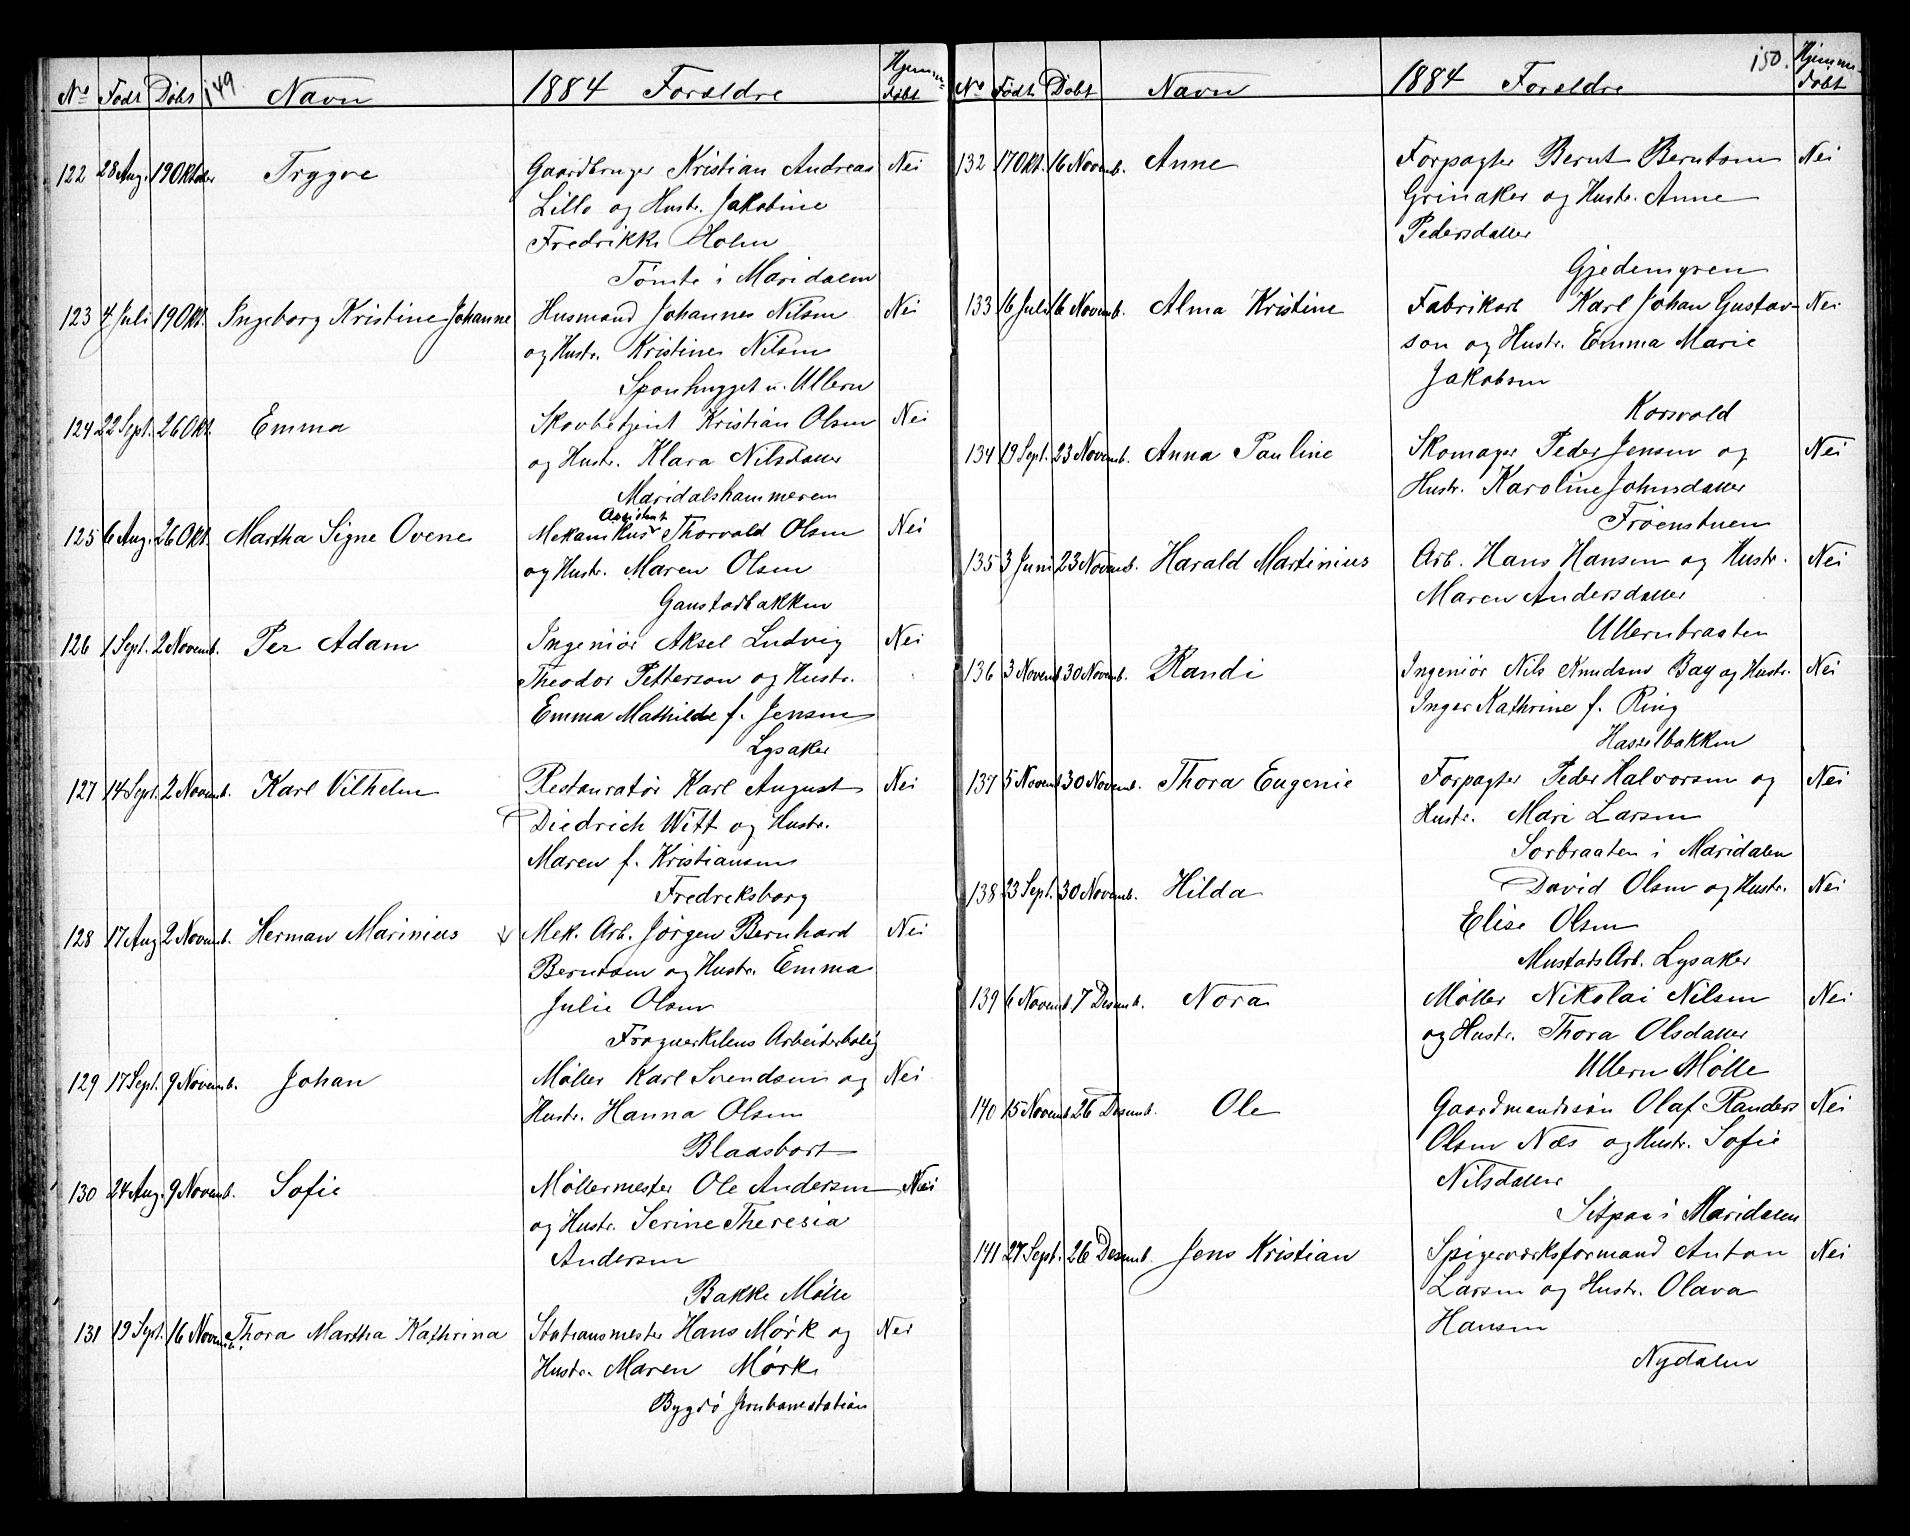 149.
No Født Døbt Navn 1884 Forældre Hjemmedøbt
122 28 Aug. 19 Oktober Trygve Gaardbruger Kristian Andreas Nei
Lillo og Hustr. Jakobine
Fredrikke Holm
Tømte i Maridalen
123 4 Juli 19 Okt. Ingeborg Kristine Johanne Husmand Johannes Nilsen Nei
og Hustr. Kristine Nilsen
Sponhugget u. Ullern
124 22 Sept. 26 Okt. Emma Skovbetjent Kristian Olsen Nei
og Hustr. Klara Nilsdatter
Maridalshammeren
125 6 Aug. 26 Okt. Martha Signe Ovene Mekanikus Assistent Thorvald Olsen Nei
og Hustr. Maren Olsen
Gaustadbakken
126 1 Sept. 2 Novemb. Per Adam Ingeniør Aksel Ludvig Nei
Theodor Petterson og Hustr.
Emma Mathilde f. Jensen
Lysaker
127 14 Sept. 2 Novemb. Karl Vilhelm Restauratør Karl August Nei
Diedrich Witt og Hustr.
Maren f. Kristiansen
Fredriksborg
128 17 Aug. 2 Novemb. Herman Marinius Mek. Arb. Jørgen Bernhard Nei
Berntsen og Hustr. Emma
Julie Olsen
Frognerkilens Arbeiderbolig
129 17 Sept. 9 Novemb. Johan Møller Karl Svendsen og Nei
Hustr. Hanna Olsen
Blaasbort
130 24 Aug. 9 Novemb. Sofie Møllermester Ole Andersen Nei
og Hustr. Serine Theresia
Andersen
Bakke Mølle
131 19 Sept. 16 Novemb. Thora Martha Kathrina Stationsmester Hans Mørk og Nei
Hustr. Maren Mørk
Bygdø Jernbanestation
150.
No Født Døbt Navn 1884 Forældre Hjemmedøbt
132 17 Okt. 16 Novemb. Anne Forpagter Bernt Berntsen Nei
Grinaker og Hustr. Anne
Pedersdatter
Gjedemyren
133 16 Juli 16 Novemb. Alma Kristine Fabrikarb Karl Johan Gustav- Nei
son og Hustr. Emma Marie
Jakobsen
Korsvold
134 19 Sept. 23 Novemb. Anna Pauline Skomager Peder Jensen og Nei
Hustr. Karoline Johnsdatter
Frøenstuen
135 3 Juni 23 Novemb. Harald Martinius Arb. Hans Hansen og Hustr. Nei
Maren Andersdatter
Ullernbraaten
136 3 Novemb 30 Novemb. Randi Ingeniør Nils Knudsen Bay og Hustr. Nei
Inger Kathrine f. Ring
Hasselbakken
137 5 Novemb 30 Novemb. Thora Eugenie Forpagter Peder Halvorsen og Nei
Hustr. Mari Larsen
Sørbraaten i Maridalen
138 23 Sept. 30 Novemb. Hilda David Olsen og Hustr. Nei
Elise Olsen
Mustads Arb. Lysaker
139 6 Novemb 7 Desemb. Nora Møller Nikolai Nilsen Nei
og Hustr. Thora Olsdatter
Ullern Mølle
140 15 Novemb 26 Desemb. Ole Gaardmandssøn Olaf Randers Nei
Olsen Næs og Hustr. Sofie
Nilsdatter
i Maridalen
141 27 Sept. 26 Desemb. Jens Kristian Spigerværksformand Anton Nei
Larsen og Hustr. Olava
Hansen
Nydalen